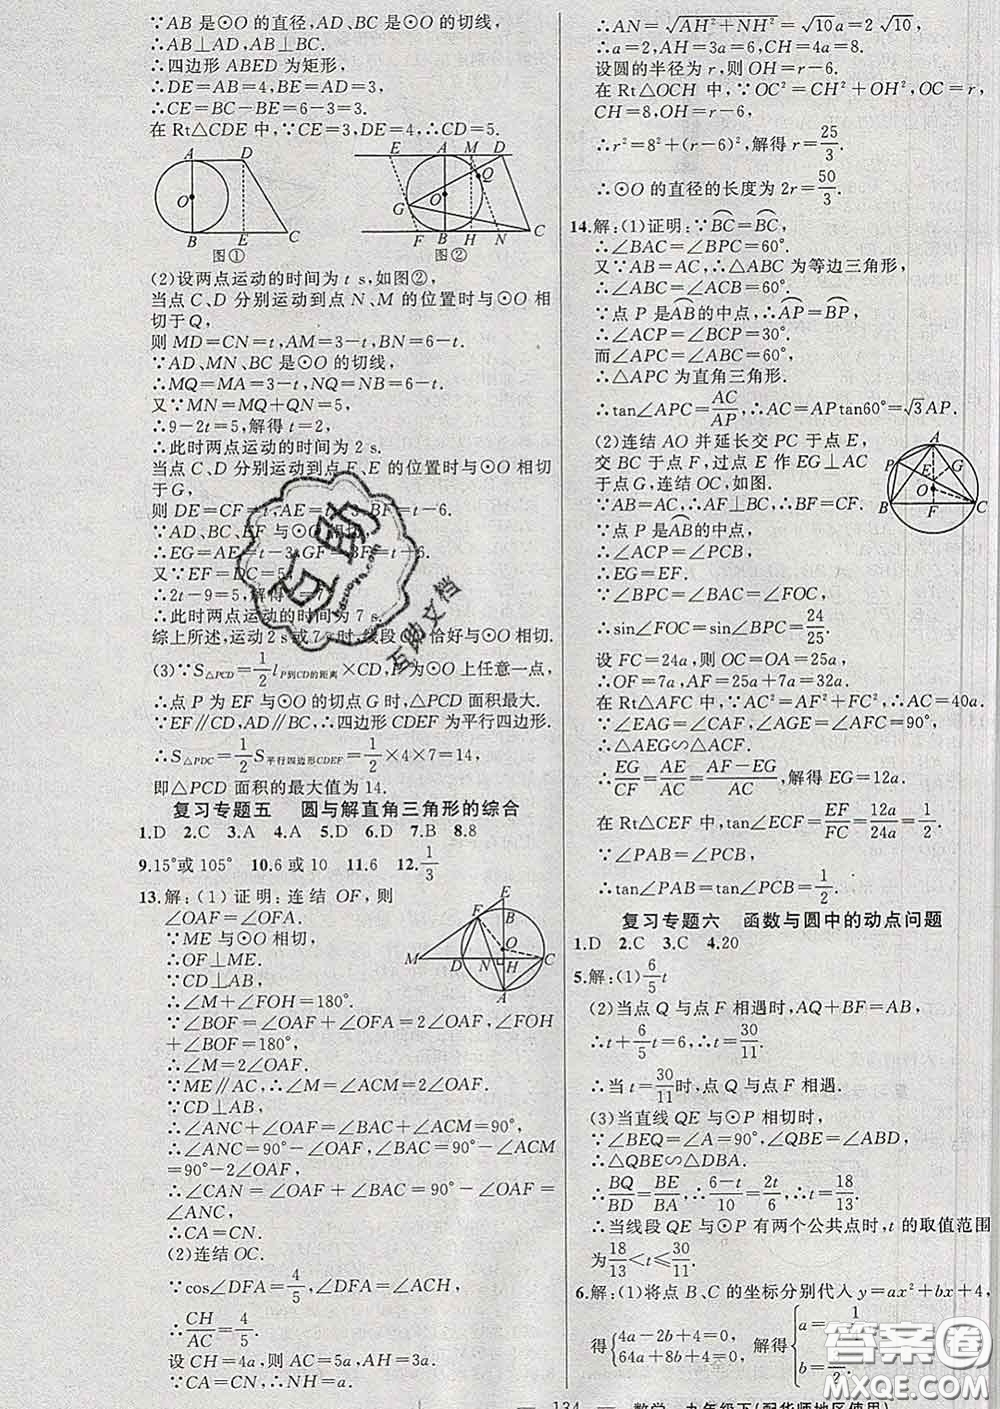 ∵AB是⊙O的直径,AD、BC是⊙O的切线,
∴AB⊥AD,AB⊥BC.
∴四边形ABED为矩形,
∴DE=AB=4,BE=AD=3,
∴CE=BC−BE=6−3=3.
在Rt△CDE中,∵CE=3,DE=4,∴CD=5.
A D O B E C
图①
E A M D Q O G F B H N C
图②
(2)设两点运动的时间为t s,如图②,
当点C、D分别运动到点N、M的位置时与⊙O相
切于Q,
则MD=CN=t,AM=3−t,BN=6−t.
∵AD、MN、BC是⊙O的切线,
∴MQ=MA=3−t,NQ=NB=6−t.
又∵MN=MQ+QN=5,
∴9−2t=5,解得t=2,
∴此时两点运动的时间为2 s.
当点C、D分别运动到点F、E的位置时与⊙O相切
于G,
则DE=CF=t,AE=t−3,BF=t−6.
∵AD、BC、EF与⊙O相切,
∴EG=AE=t−3,GF=BF=t−6.
又∵EF=DC=5,
∴2t−9=5,解得t=7,
∴此时两点运动的时间为7 s.
综上所述,运动2 s或7 s时,线段CD恰好与⊙O相切.
(3)∵S△PCD=1/2 lP到CD的距离×CD,P为⊙O上任意一点,
∴点P为EF与⊙O的切点G时,△PCD面积最大.
∵EF∥CD,AD∥BC,∴四边形CDEF为平行四边形.
∴S△PDC=1/2 S平行四边形CDEF=1/2×4×7=14,
即△PCD面积的最大值为14.
复习专题五 圆与解直角三角形的综合
1.D 2.C 3.A 4.A 5.D 6.D 7.B 8.8
9.15°或105° 10.6或10 11.6 12.1/3
13.解:(1)证明:连结OF,则
∠OAF=∠OFA.
∵ME与⊙O相切,
∴OF⊥ME.
∵CD⊥AB,
∴∠M+∠FOH=180°.
∵∠BOF=∠OAF+∠OFA=2∠OAF,∠FOH
+∠BOF=180°,
∴∠M=2∠OAF.
∵ME∥AC,∴∠M=∠C=2∠OAF.
∵CD⊥AB,
∴∠ANC+∠OAF=∠BAC+∠ACM=90°,
∴∠ANC=90°−∠OAF,∠BAC=90°−∠ACM
=90°−2∠OAF,
∴∠CAN=∠OAF+∠BAC=90°−∠OAF=
∠ANC,
∴CA=CN.
(2)连结OC.
∵cos∠DFA=4/5,∠DFA=∠ACH,
∴CH/AC=4/5.
设CH=4a,则AC=5a,AH=3a.
∵CA=CN,∴NH=a.
E F B O M D N H C A
∴AN=√(AH²+NH²)=√10a=2√10,
∴a=2,AH=3a=6,CH=4a=8.
设圆的半径为r,则OH=r−6.
在Rt△OCH中,∵OC²=CH²+OH²,OC=r,
CH=8,OH=r−6,
∴r²=8²+(r−6)²,解得r=25/3.
∴⊙O的直径的长度为2r=50/3.
14.解:(1)证明:∵BC=BC,
∴∠BAC=∠BPC=60°.
又∵AB=AC,∴△ABC为等边三角形,
∴∠ABC=60°.
∵点P是AB的中点,∴AP=BP,
∴∠ACP=∠BCP=30°.
而∠APC=∠ABC=60°,
∴△APC为直角三角形.
∴tan∠APC=AC/AP,∴AC=APtan60°=√3AP.
(2)连结AO并延长交PC于点E,
交BC于点F,过点E作EG⊥AC
于点G,连结OC,如图.
∵AB=AC,∴AF⊥BC,∴BF=CF.
∵点P是AB的中点,
∴∠ACP=∠PCB,
∴EG=EF.
∵∠BPC=∠BAC=∠FOC,
∴sin∠FOC=sin∠BPC=24/25.
设FC=24a,则OC=OA=25a,
∴OF=7a,AF=25a+7a=32a.
在Rt△AFC中,∵AC²=AF²+FC²,∴AC=40a.
∵∠EAG=∠CAF,∠AGE=∠AFC=90°,
∴△AEG∽△ACF.
∴EG/CF=AE/AC=(AF−EG)/AC,解得EG=12a.
在Rt△CEF中,tan∠ECF=EF/FC=12a/24a=1/2.
∵∠PAB=∠PCB,
∴tan∠PAB=tan∠PCB=1/2.
A P G E O B F C
复习专题六 函数与圆中的动点问题
1.D 2.C 3.C 4.20
5.解:(1)6/5 t
(2)当点Q与点F相遇时,AQ+BF=AB,
∴t+6/5 t=6,∴t=30/11.
∴当t=30/11时,点Q与点F相遇.
(3)当直线QE与⊙P相切时,
∵∠BEQ=∠A=90°,∠QBE=∠ABD,
∴△QBE∽△DBA.
∴BQ/BD=BE/BA,∴(6−t)/10=2t/6,∴t=18/13.
∴当线段QE与⊙P有两个公共点时,t的取值范围
为18/13<t≤30/11.
6.解:(1)将点B、C的坐标分别代入y=ax²+bx+4,
得{4a−2b+4=0, 64a+8b+4=0. 解得{a=
b=
134 数学 九年级下(配华师地区使用)
互助
互助文档
答案圈